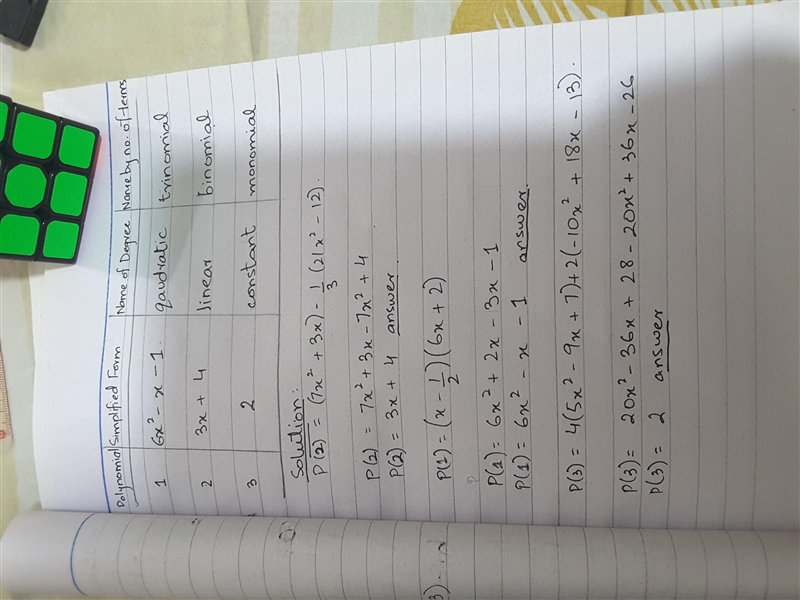 Polynomial Simplified Form Name of Degree Name by no. of terms
1 6x² - x - 1 qaudratic trinomial
2 3x + 4 linear binomial
3 2 constant monomial
Solution:
P(2) = (7x² + 3x) - 1/3 (21x² - 12).
P(2) = 7x² + 3x - 7x² + 4
P(2) = 3x + 4 answer
P(1) = (x - 1/2)(6x + 2)
P(1) = 6x² + 2x - 3x - 1
P(1) = 6x² - x - 1 answer
P(3) = 4(5x² - 9x + 7) + 2(-10x² + 18x - 13).
P(3) = 20x² - 36x + 28 - 20x² + 36x - 26
P(3) = 2 answer